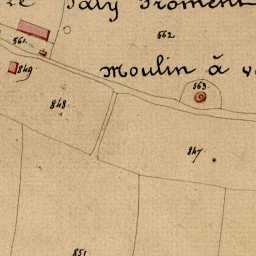 Paly Froment
561
562
Moulin à v
849
563
848
847
851